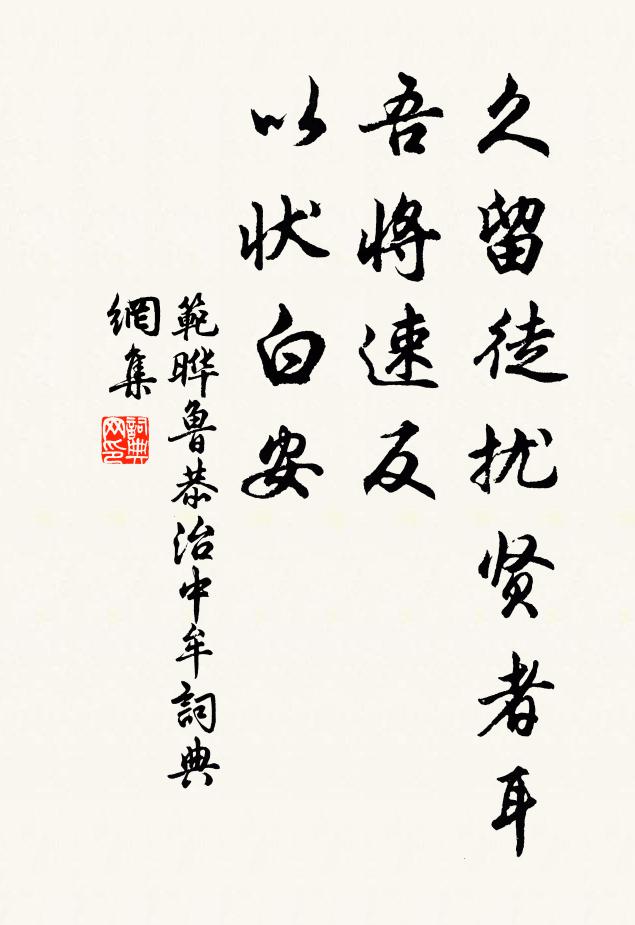 久留徒扰贤者耳
吾将速反
以状白安
範晔魯恭治中牟詞典
網集
詞典
网印